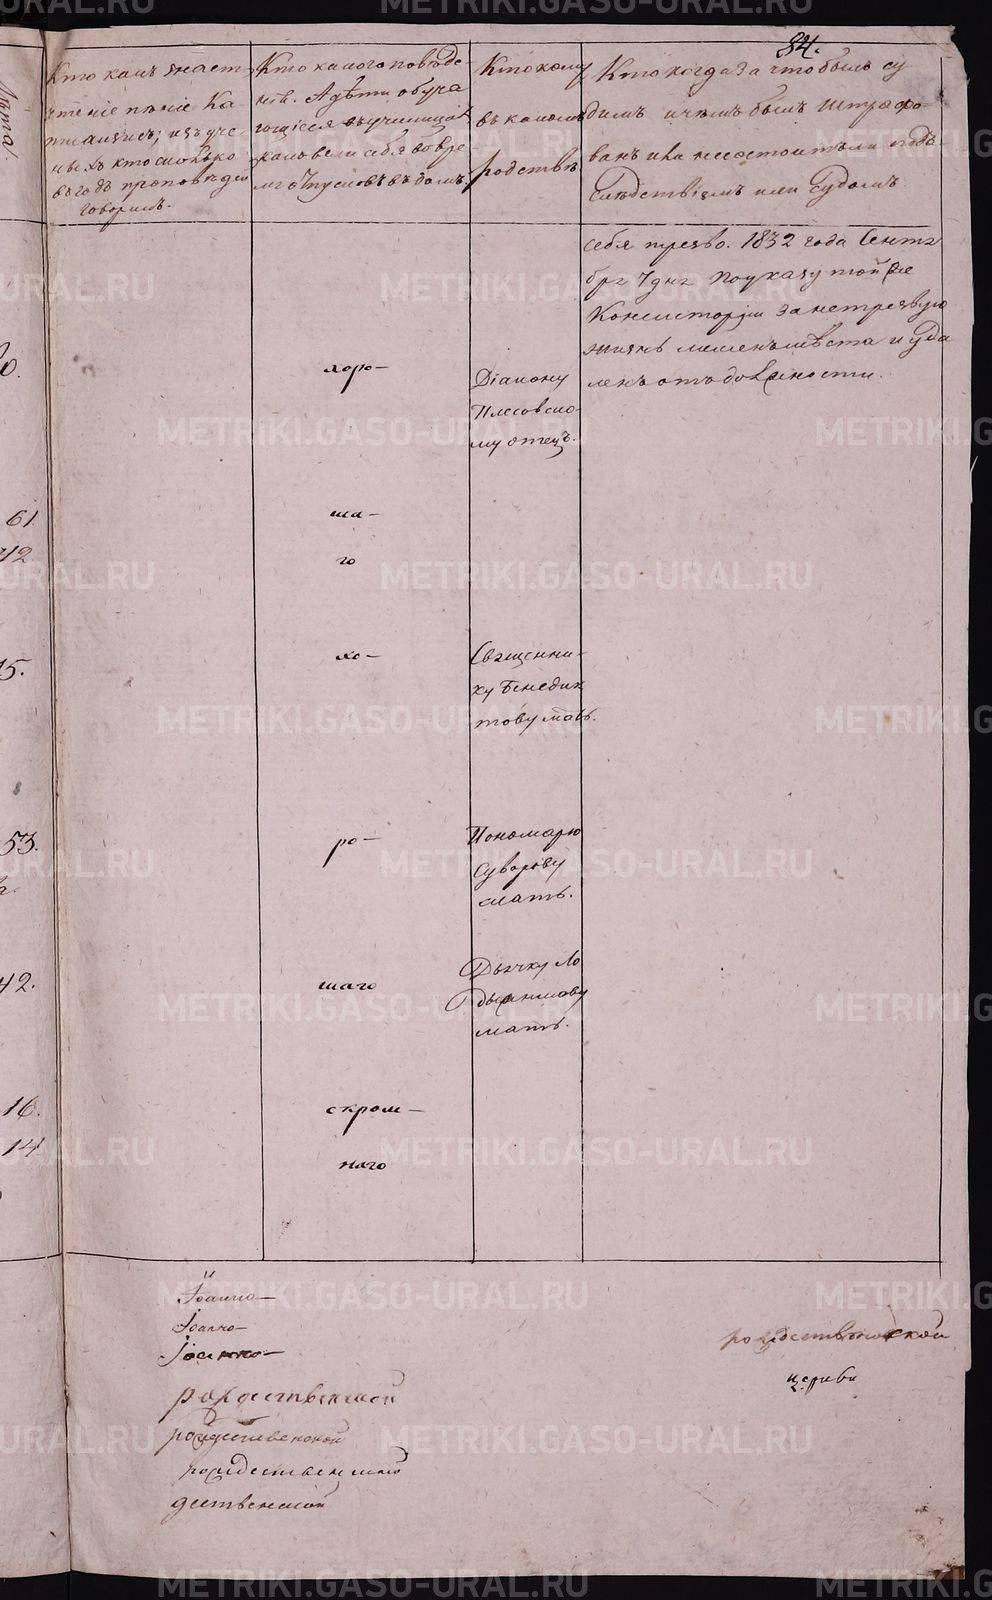 84.
Лѣта.
Кто какъ знаетъ
чтеніе пѣніе Ка-
тихизисъ; изъ уче-
ныхъ кто сколько
въ годъ проповѣдей
говорилъ.
Кто какого поведе-
нія. А дѣти обуча
ющіеся въ училищахъ
каковы себя во вре-
мя отпусковъ въ домъ.
Кто кому
въ какомъ
родствѣ
Кто когда за что былъ су
димъ и чѣмъ былъ штрафо-
ванъ и не состоитъ ли подъ
слѣдствіемъ или судомъ.
себя трезво. 1832 года Сентя
бря 7 дня по указу той же
Консисторіи за нетрезвую
жизнь лишенъ мѣста и уда
ленъ отъ должности.
хоро-
Діакону
Плесовско-
му отецъ.
61
ша-
42
го
15.
хо-
Священни-
ку Бенедик
тову мать.
53.
ро-
Пономарю
Суворову
мать.
42.
шаго
Дьячку Ло
мать.
16.
скром-
14
наго
Іоанно-
Іоанно-
Іоанно-
рождественской
рождественской
рождественской
дественской
рождественской
церкви
METRIKI.GASO-URAL.RU